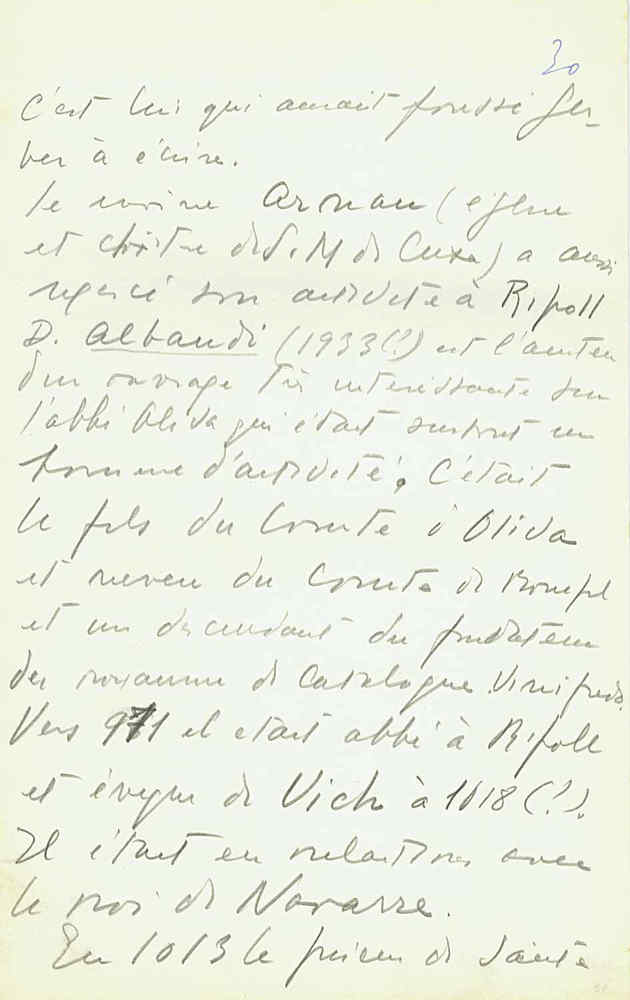 30
c'est lui qui aurait poussé Ger-
ber à écrire.
Le moine Arnau (église
et cloître de S. M de Cuxa) a aussi
exercé son activité à Ripoll
D. Albaudi (1933(?)) est l'auteur
d'un ouvrage très intéressante sur
l'abbé Oliva qui était surtout un
homme d'activité, C'était
le fils du Comte d'Oliva
et neveu du Comte de
et un descendant du fondateur
du royaume de Catalogne Vinifredo.
Vers 971 il était abbé à Ripoll
et évêque de Vich à 1018 (?).
Il était en relations avec
le roi de Navarre.
En 1013 le prieur de Sainte